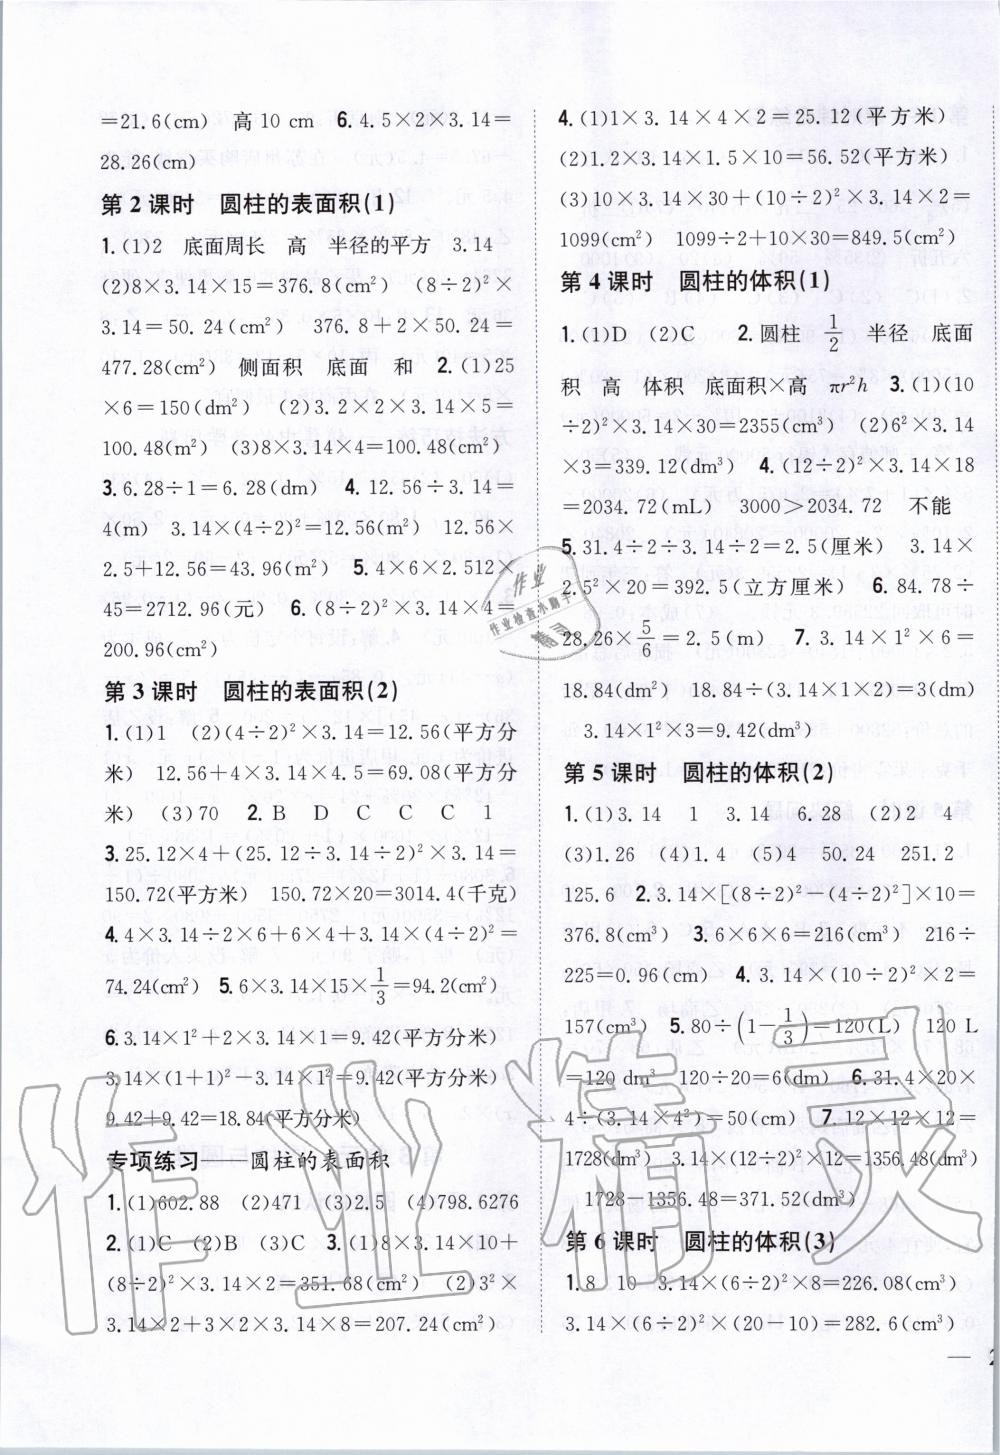 =21.6(cm) 高10 cm 6. 4.5×2×3.14=
28.26(cm)
第2课时 圆柱的表面积(1)
1. (1)2 底面周长 高 半径的平方 3.14
(2)8×3.14×15=376.8(cm²) (8÷2)²×
3.14=50.24(cm²) 376.8+2×50.24=
477.28(cm²) 侧面积 底面 和 2. (1)25
×6=150(dm²) (2)3.2×2×3.14×5=
100.48(m²) (3)8×3.14×4=100.48(cm²)
3. 6.28÷1=6.28(dm) 4. 12.56÷3.14=
4(m) 3.14×(4÷2)²=12.56(m²) 12.56×
2.5+12.56=43.96(m²) 5. 4×6×2.512×
45=2712.96(元) 6. (8÷2)²×3.14×4=
200.96(cm²)
第3课时 圆柱的表面积(2)
1. (1)1 (2)(4÷2)²×3.14=12.56(平方分
米) 12.56+4×3.14×4.5=69.08(平方分
米) (3)70 2. B D C C C 1
3. 25.12×4+(25.12÷3.14÷2)²×3.14=
150.72(平方米) 150.72×20=3014.4(千克)
4. 4×3.14÷2×6+6×4+3.14×(4÷2)²=
74.24(cm²) 5. 6×3.14×15×1/3=94.2(cm²)
6. 3.14×1²+2×3.14×1=9.42(平方分米)
3.14×(1+1)²-3.14×1²=9.42(平方分米)
9.42+9.42=18.84(平方分米)
专项练习——圆柱的表面积
1. (1)602.88 (2)471 (3)2.5 (4)798.6276
2. (1)C (2)B (3)C 3. (1)8×3.14×10+
(8÷2)²×3.14×2=351.68(cm²) (2)3²×
3.14×2+3×2×3.14×8=207.24(cm²)
4. (1)1×3.14×4×2=25.12(平方米)
(2)1.2×3.14×1.5×10=56.52(平方米)
(3)10×3.14×30+(10÷2)²×3.14×2=
1099(cm²) 1099÷2+10×30=849.5(cm²)
第4课时 圆柱的体积(1)
1. (1)D (2)C 2. 圆柱 1/2 半径 底面
积 高 体积 底面积×高 πr²h 3. (1)(10
÷2)²×3.14×30=2355(cm³) (2)6²×3.14
×3=339.12(dm³) 4. (12÷2)²×3.14×18
=2034.72(mL) 3000>2034.72 不能
5. 31.4÷2÷3.14÷2=2.5(厘米) 3.14×
2.5²×20=392.5(立方厘米) 6. 84.78÷
28.26×5/6=2.5(m) 7. 3.14×1²×6=
18.84(dm³) 18.84÷(3.14×1×2)=3(dm)
3.14×1²×3=9.42(dm³)
第5课时 圆柱的体积(2)
1. (1)3.14 1 3.14 6.28 (2)2 4
(3)1.26 (4)1.4 (5)4 50.24 251.2
125.6 2. 3.14×[(8÷2)²-(4÷2)²]×10=
376.8(cm³) 3. 6×6×6=216(cm³) 216÷
225=0.96(cm) 4. 3.14×(10÷2)²×2=
157(cm³) 5. 80÷(1-1/3)=120(L) 120 L
=120 dm³ 120÷20=6(dm) 6. 31.4×20×
4÷(3.14×4²)=50(cm) 7. 12×12×12=
1728(dm³) 3.14×(12÷2)²×12=1356.48(dm³)
1728-1356.48=371.52(dm³)
第6课时 圆柱的体积(3)
1. 8 10 3.14×(6÷2)²×8=226.08(cm³)
3.14×(6÷2)²×(20-10)=282.6(cm³)
作业精灵